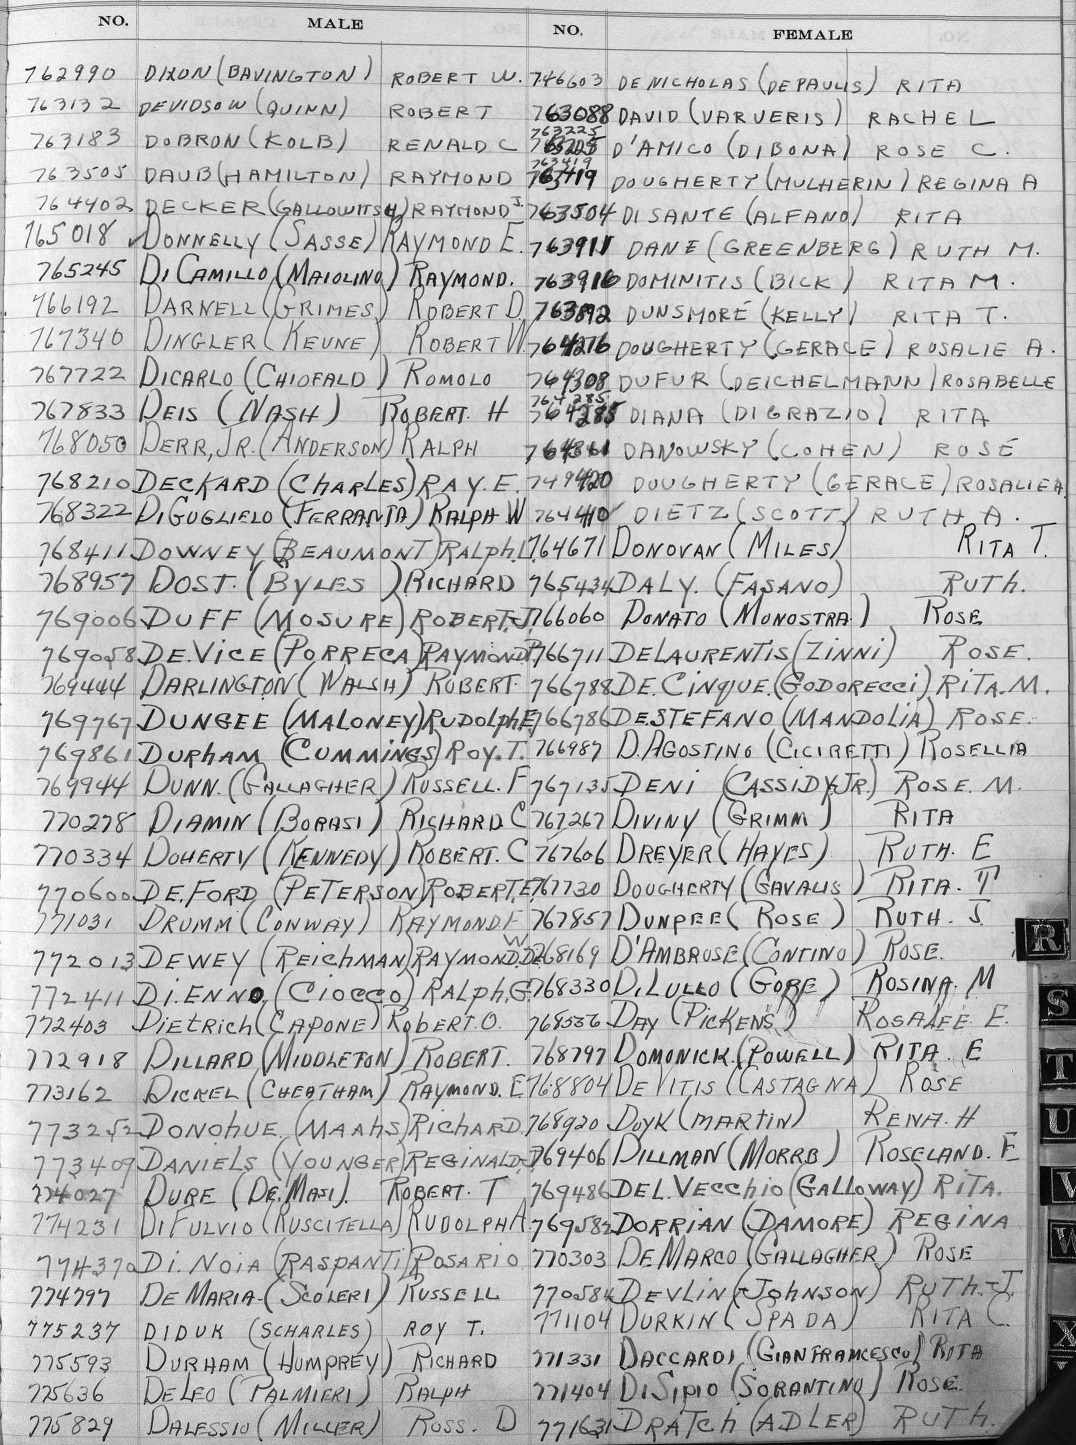 NO. MALE NO. FEMALE
762990 DIXON (BAVINGTON) ROBERT W. 746603 DENICHOLAS (DEPAULIS) RITA
763132 DEVIDSOW (QUINN) ROBERT 763088 DAVID (VARVERIS) RACHEL
763183 DOBRON (KOLB) RENALD C 763225 D'AMICO (DIBONA) ROSE C.
763505 DAUB (HAMILTON) RAYMOND 763419 DOUGHERTY (MULHERIN) REGINA A
764402 DECKER (GALLOWITSH) RAYMOND J. 763504 DISANTE (ALFANO) RITA
765018 DONNELLY (SASSE) RAYMOND E. 763911 DANE (GREENBERG) RUTH M.
765245 DiCAMILLO (MAIOLINO) RAYMOND. 763916 DOMINITIS (BICK) RITA M.
766192 DARNELL (GRIMES) ROBERT D. 763892 DUNSMORE (KELLY) RITA T.
767340 DINGLER (KEUNE) ROBERT W. 764276 DOUGHERTY (GERACE) ROSALIE A.
767722 DICARLO (CHIOFALD) ROMOLO 764308 DUFUR (DEICHELMANN) ROSABELLE
767833 DEIS (NASH) ROBERT. H 764285 DIANA (DIGRAZIO) RITA
768050 DERR, JR. (ANDERSON) RALPH DANOWSKY (COHEN) ROSE
768210 DECKARD (CHARLES) RAY. E. 749420 DOUGHERTY (GERACE) ROSALIE A
768322 DiGUGLIELO (FERRANTA) RALPH W 764410 DIETZ (SCOTT) RUTH A.
768411 DOWNEY (BEAUMONT) RALPH. L. 764671 DONOVAN (MILES) RITA T.
768957 DOST. (BYLES) RICHARD 765434 DALY. (FASANO) RUTH.
769006 DUFF (MOSURE) ROBERT. J. 766060 DONATO (MONOSTRA) ROSE
769058 DE.VICE (PORRECA) RAYMOND 766711 DELAURENTIS (ZINNI) ROSE.
769444 DARLINGTON (WALSH) ROBERT 766788 DE.CINQUE. (GODORECCI) RITA. M.
769767 DUNGEE (MALONEY) RUDOLPH. E. 766786 DESTEFANO (MANDOLIA) ROSE.
769861 DURHAM (CUMMINGS) ROY. T. 766987 D.AGOSTINO (CICIRETTI) ROSELLIA
769944 DUNN. (GALLAGHER) RUSSELL. F 767135 DENI (CASSIDY, JR.) ROSE. M.
770278 DIAMIN (BORASI) RICHARD C 767267 DIVINY (GRIMM) RITA
770334 DOHERTY (KENNEDY) ROBERT. C 767606 DREYER (HAYES) RUTH. E
770600 DE.FORD (PETERSON) ROBERT. E. 767730 DOUGHERTY (GAVALIS) RITA. T
771031 DRUMM (CONWAY) RAYMOND. F 767857 DUNPEE (ROSE) RUTH. J
772013 DEWEY (REICHMAN) RAYMOND. W 768169 D'AMBROSE (CONTINO) ROSE.
772411 Di.ENNO. (CIOCCO) RALPH. G. 768330 DiLULLO (GORE) ROSINA. M
772403 DIETRICH (CAPONE) ROBERT. O. 768536 DAY (PICKENS) ROSALEE. E.
772918 DILLARD (MIDDLETON) ROBERT. 768797 DOMONICK. (POWELL) RITA. E
773162 DICKEL (CHEATHAM) RAYMOND. E 768804 DEVITIS (CASTAGNA) ROSE
773252 DONOHUE. (MAAHS) RICHARD. 768920 DUYK (MARTIN) RENA. H
773409 DANIELS (YOUNGER) REGINALD. 769406 DILLMAN (MORRB) ROSELAND. E
774027 DURE (DE.MASI). ROBERT. T 769486 DEL.VECCHIO (GALLOWAY) RITA.
774231 DiFULVIO (RUSCITELLA) RUDOLPH A. 769582 DORRIAN (DAMORE) REGINA
774370 Di.NOIA (RASPANTI) ROSARIO 770303 DEMARCO (GALLAGHER) ROSE
774797 DE MARIA (SCOLERI) RUSSELL 770584 DEVLIN (JOHNSON) RUTH. J.
775237 DIDUK (SCHARLES) ROY T. 771104 DURKIN (SPADA) RITA C.
775593 DURHAM (HUMPREY) RICHARD 771331 DACCARDI (GIANFRANCESCO) RITA
775636 DELEO (PALMIERI) RALPH 771404 DiSIPIO (SORANTINO) ROSE.
775829 DALESSIO (MILLER) ROSS. D 771631 DRATCH (ADLER) RUTH.
R
S
T
U
V
W
X